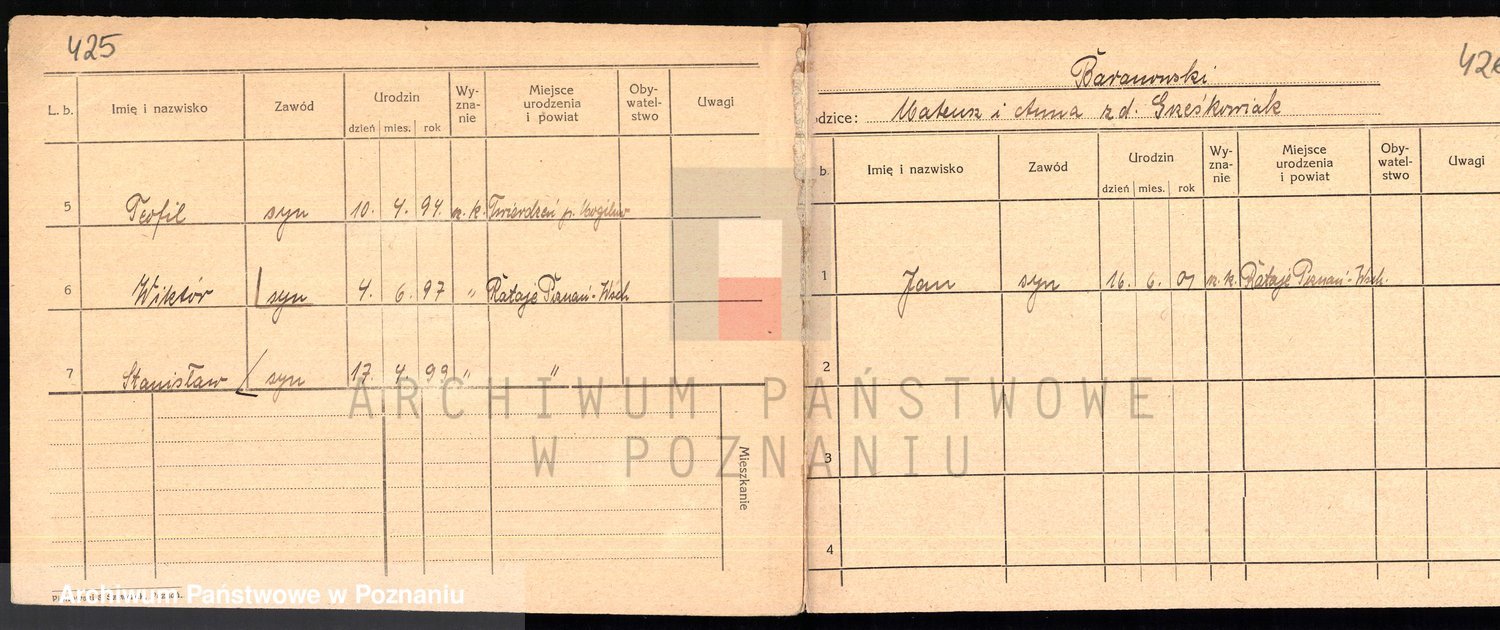 425
L. b. Imię i nazwisko Zawód Urodzin Wy-zna-nie Miejsce urodzenia i powiat Oby-watel-stwo Uwagi
dzień mies. rok
5 Teofil syn 10. 4. 94. rz. k. Twierdzeń p. Mogilno
6 Wiktór syn 4. 6. 97 " Rataje Poznań-Wsch.
7 Stanisław syn 17. 4. 99 " "
Mieszkanie
426
Baranowski
odzice: Mateusz i Anna z d. Grześkowiak
b. Imię i nazwisko Zawód Urodzin Wy-zna-nie Miejsce urodzenia i powiat Oby-watel-stwo Uwagi
dzień mies. rok
1 Jan syn 16. 6. 01 rz. k. Rataje Poznań-Wsch.
2
3
4
ARCHIWUM PAŃSTWOWE
W POZNANIU
Archiwum Państwowe w Poznaniu